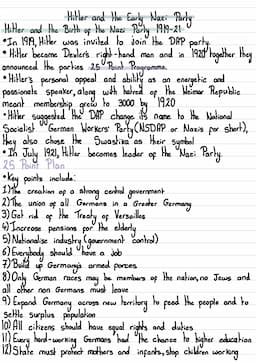 Hitler and the Early Nazi Party
Hitler and the Birth of the Nazi Party 1919-21
• In 1919, Hitler was invited to join the DAP party.
• Hitler became Dexler's right-hand man and in 1920 together they
announced the parties 25 Point Programme.
• Hitler's personal appeal and ability as an energetic and
passionate speaker, along with hatred of the Weimar Republic
meant membership grew to 3000 by 1920
• Hitler suggested the DAP change its name to the National
Socialist German Workers' Party (NSDAP or Nazis for short),
they also chose the Swastika as their symbol
• In July 1921, Hitler becomes leader of the Nazi Party.
25 Point Plan
• Key points include:
1) The creation of a strong central government
2) The union of all Germans in a Greater Germany
3) Get rid of the Treaty of Versailles
4) Increase pensions for the elderly
5) Nationalise industry (government control)
6) Everybody should have a job
7) Build up Germany's armed forces
8) Only German races may be members of the nation, no Jews and
all other non Germans must leave
9) Expand Germany across new territory to feed the people and to
settle surplus population
10) All citizens should have equal rights and duties
11) Every hard-working Germans had the chance to higher education
12) State must protect mothers and infants, stop children working